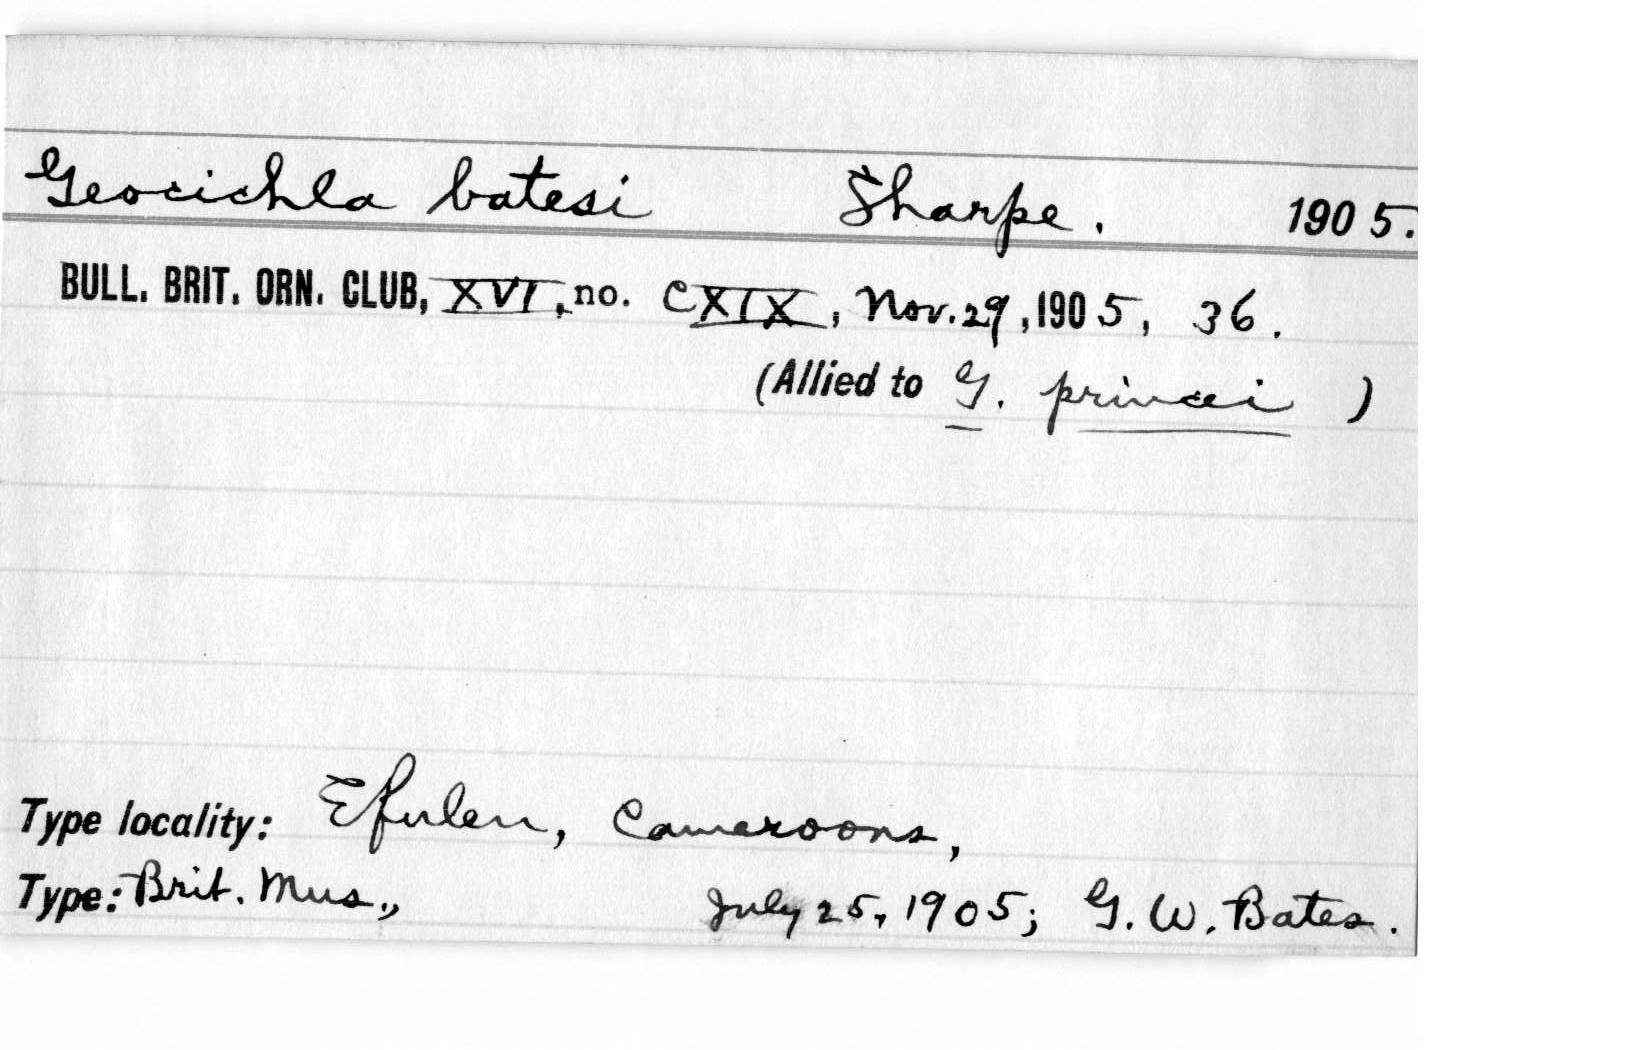 Geocichla batesi Sharpe. 1905.
BULL. BRIT. ORN. CLUB, XVI, no. CXIX, Nov. 29, 1905, 36.
(Allied to G. princei )
Type locality: Efulen, Cameroons,
Type: Brit. Mus., July 25, 1905; G. W. Bates.